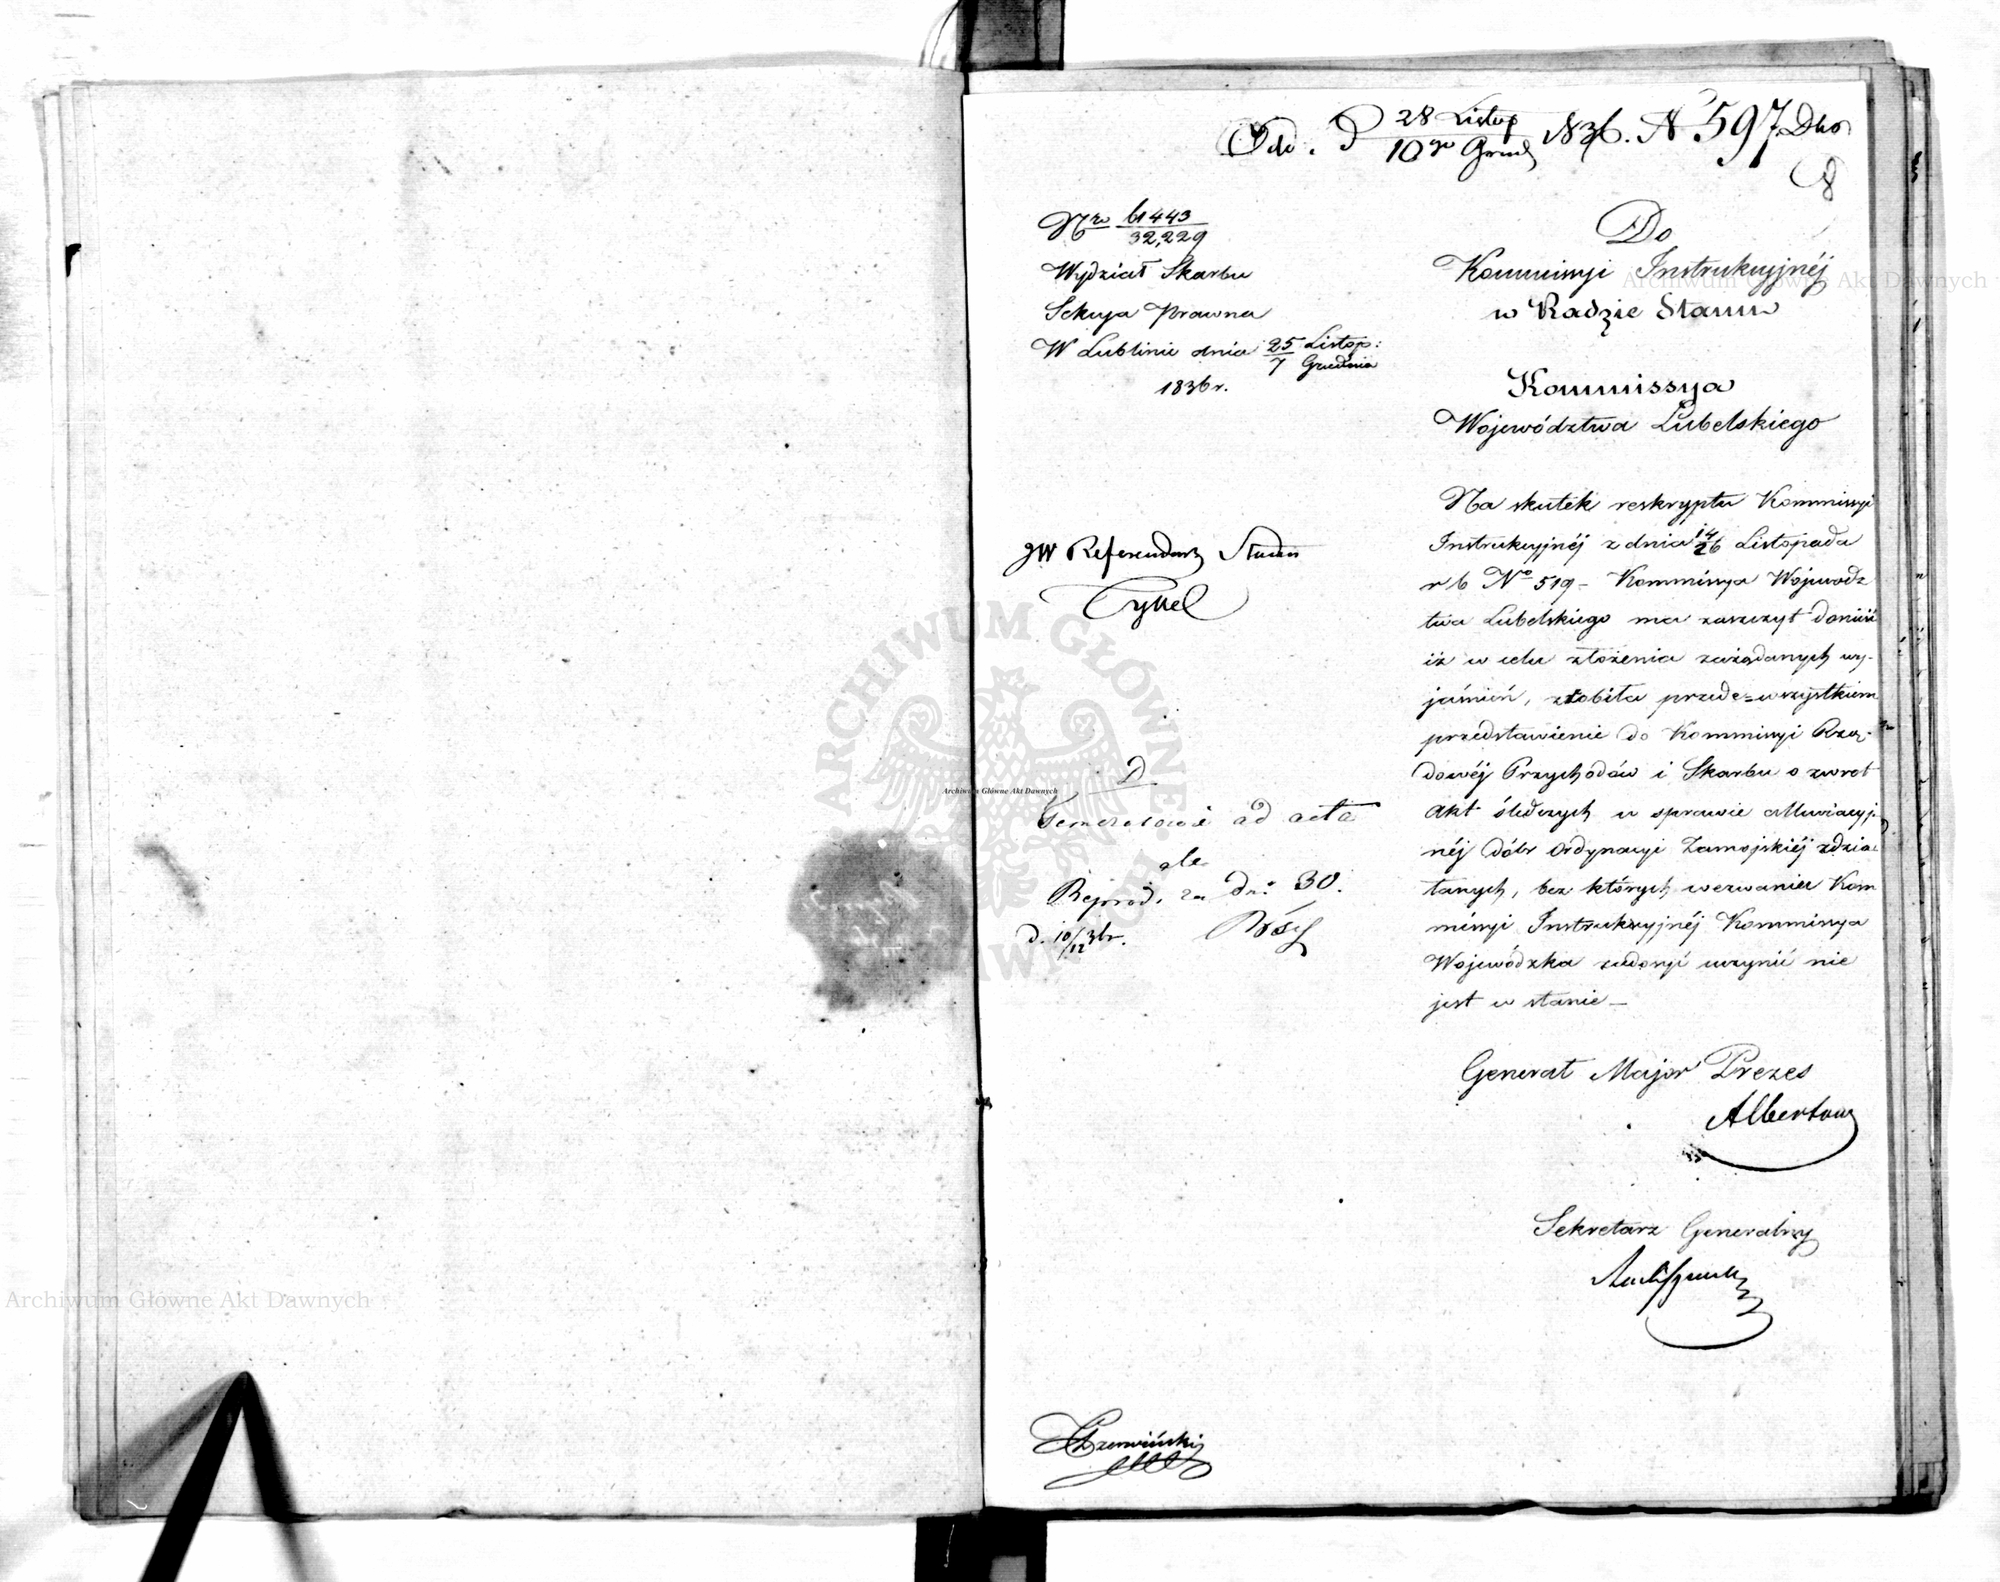 Odd. d 28 Listop / 10go Grud 1836. N 597 Dbo
8
Nro 61443 / 32,229
Wydział Skarbu
Sekcya Prawna
W Lublinie dnia 25 Listop: / 7 Grudnia
1836 r.
Do
Kommissyi Instrukcyjnéj
w Radzie Stanu
Kommissya
Województwa Lubelskiego
Na skutek reskryptu Kommissyi
Instrukcyjnéj z dnia 14/26 Listopada
r b No 519 – Kommissya Wojewodz
twa Lubelskiego ma zaszczyt donieść
iż w celu złożenia zażądanych wy-
jaśnień, zrobiła przede=wszystkiem
przedstawienie do Kommissyi Rzą-
dowéj Przychodów i Skarbu o zwrot
Akt śledczych w sprawie
néj dóbr Ordynacyi Zamojskiéj zdzia
łanych, bez których wezwaniu Kom
missyi Instrukcyjnéj Kommissya
Wojewódzka zadosyć uczynić nie
jest w stanie –
JW Referendarz Stanu
D
ad acta
ale
Reprod. za dni 30.
d. 10/12 36r.
Generał Major Prezes
Albertow
Sekretarz Generalny
Czerwiński
ARCHIWUM GŁÓWNE AKT DAWNYCH
Archiwum Główne Akt Dawnych
Archiwum Główne Akt Dawnych
Archiwum Główne Akt Dawnych